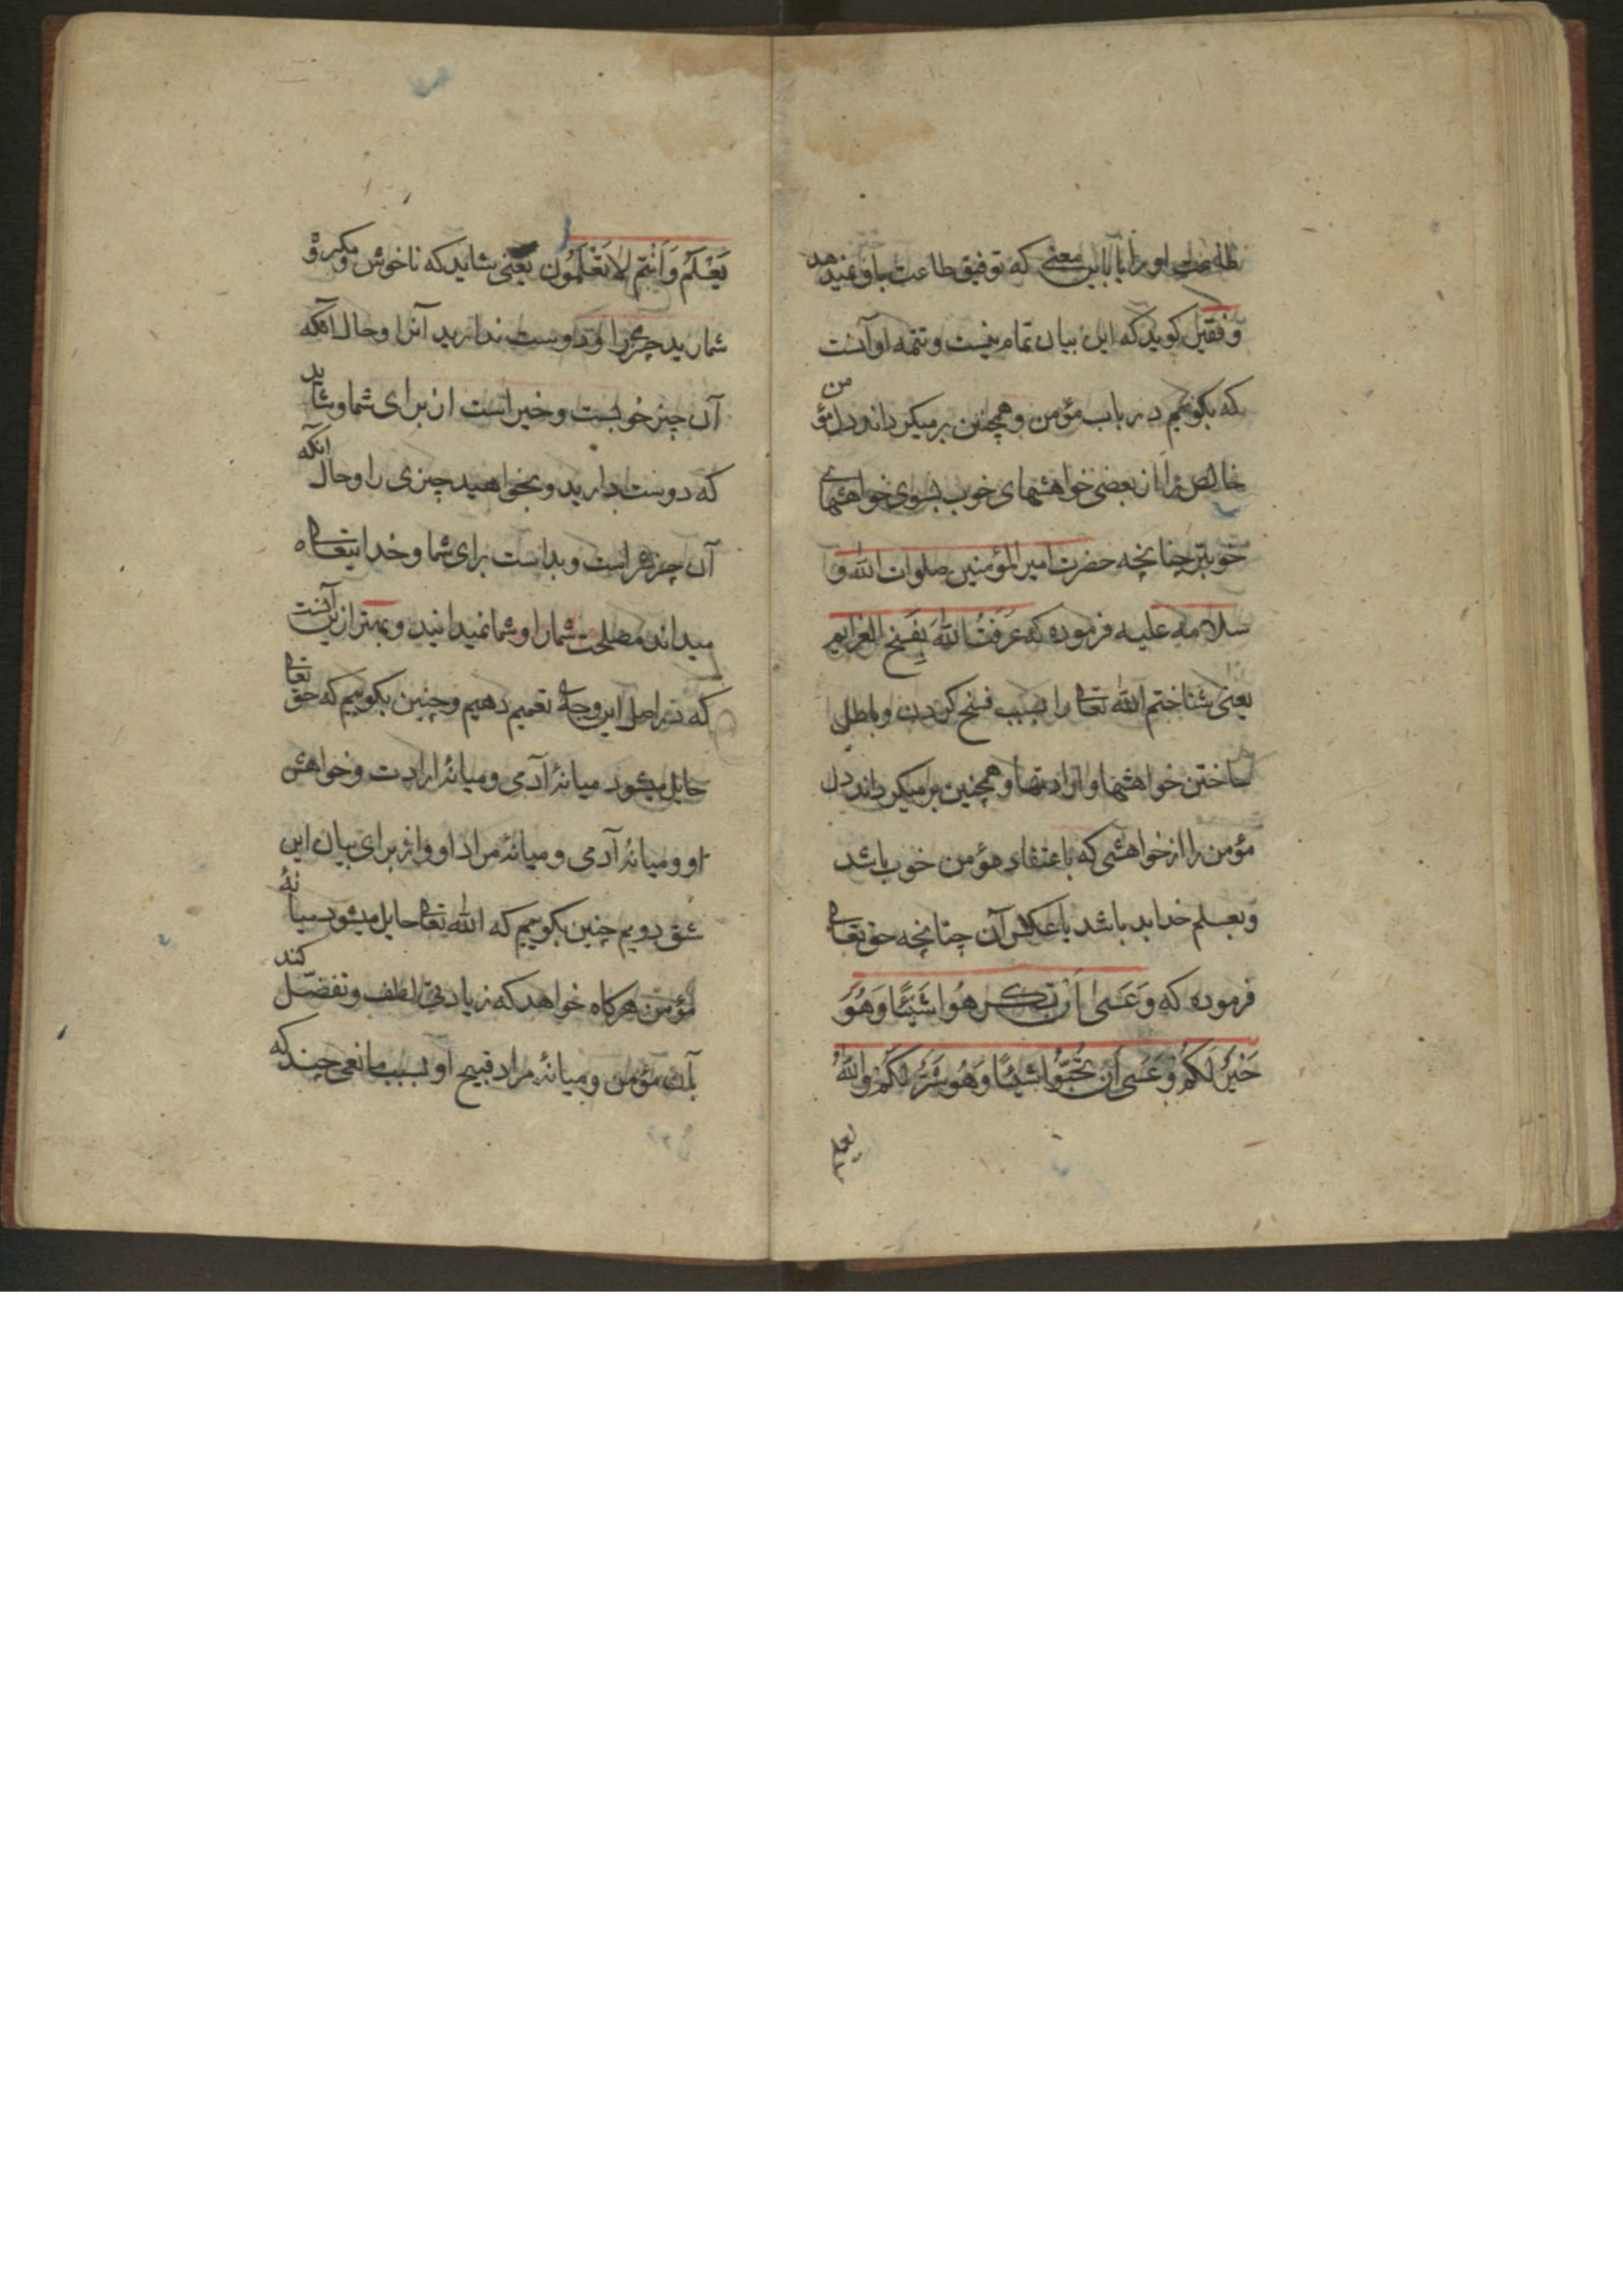 او را با این معنی که توفیق طاعت باو نمیدهد
و فقیر کوید که این بیان تمام نیست و تتمه او آنست
که بکوییم در باب مؤمن و همچنین برمیکرداند دل مؤمن
خالص را از بعضی خواهشهای خوب بسوی خواهشهای
خوبتر چنانچه حضرت امیر المؤمنین صلوات الله و
سلامه علیه فرموده که عَرَفْتُ اللهَ بِفَسْخِ العَزایِم
یعنی شناختم الله تعالی را بسبب فسخ کردن و باطل
ساختن خواهشها و ارادتها و همچنین برمیکرداند دل
مؤمن را از خواهشی که باعتقاد مؤمن خوب باشد
و بعلم خدا بد باشد یا عکس آن چنانچه حق تعالی
فرموده که وَعَسَىٰ اَنْ تَكْرَهُوا شَيْئًا وَهُوَ
خَيْرٌ لَكُمْ وَعَسَى اَنْ تُحِبُّوا شَيْئًا وَهُوَ شَرٌّ لَكُمْ وَاللّٰهُ
یعلم
يَعْلَمُ وَاَنْتُمْ لَا تَعْلَمُونَ یعنی شاید که ناخوش و مکروه
شمارید چیزی را و دوست ندارید آنرا و حال آنکه
آن چیز خوبست و خیر است از برای شما و شاید
که دوست دارید و بخواهید چیزی را و حال آنکه
آن چیز شر است و بد است برای شما و خدایتعالی
میداند مصلحت شما را و شما نمیدانید و بهتر ازین آنست
که در اصل این وجه تعمیم دهیم و چنین بکوییم که حق تعالی
حایل میشود میانهٔ آدمی و میانهٔ ارادت و خواهش
او و میانهٔ آدمی و میانهٔ مراد او و از برای بیان این
شق دویم چنین بکوییم که الله تعالی حایل میشود میانهٔ
مؤمن هرکاه خواهد که زیادتی لطف و تفضّل کند
بآن مؤمن و میانهٔ مراد قبیح او بسبب مانعی چند که